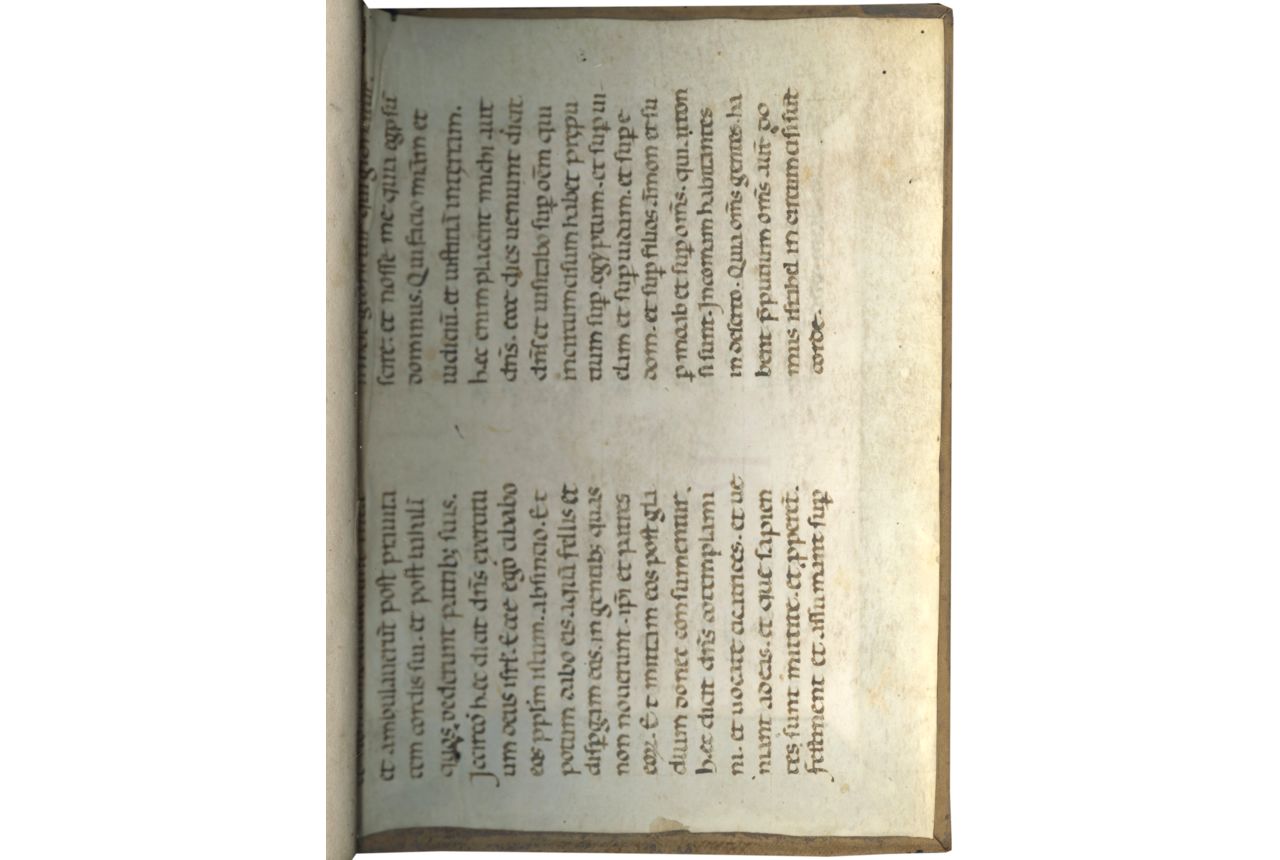 et ambulauerūt post prauita
tem cordis sui. et post baali
quos. dederunt patrib; suis.
Iccirco hęc dicit dn̄s exercitu
um deus isrl̄. Ecce ego cibabo
eos ppl̄m istum. absintio. Et
potum dabo eis aquā fellis et
disꝑgam eos. in gentib; quas
non nouerunt. ipi̅ et patres
eoꝝ. Et mittam eos post gla
dium donec consumentur.
hęc dicit dn̄s cōtemplami
ni. et uocate lamentatrices. et ue
niant ad eas. et quę sapien
tes sunt mittite. et ꝓperēt.
festinent et assumant suꝑ
scire. et nosse me quia ego sū
dominus. Qui facio mīam et
iudiciū. et iustitiā in terram.
hęc enim placent michi. ait
dn̄s. ecce dies ueniunt dicit
dn̄s et uisitabo suꝑ oēm qui
incircumcisum habet prępu
tium suꝑ. egyptum. et suꝑ iu
dam et suꝑ
dom. et suꝑ filios. āmon et su
ꝑ moab et suꝑ om̄s. qui. atton
si sunt. In comam habitantes
in deserto. Quia om̄s gentes. ha
bent p̄putium om̄s. aūt do
mus israhel incircumcisi sūt
corde.